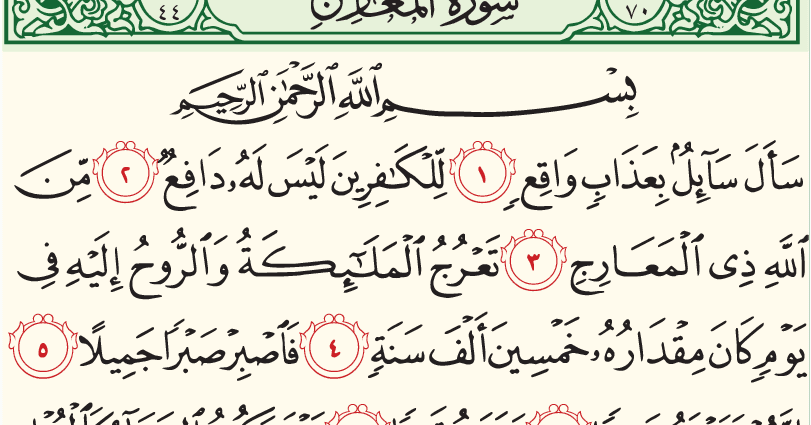 ٧٠ سُورَةُ المَعَارِجِ ٤٤
بِسْمِ ٱللَّهِ ٱلرَّحْمَٰنِ ٱلرَّحِيمِ
سَأَلَ سَآئِلُۢ بِعَذَابٖ وَاقِعٖ ١ لِّلۡكَٰفِرِينَ لَيۡسَ لَهُۥ دَافِعٞ ٢ مِّنَ
ٱللَّهِ ذِي ٱلۡمَعَارِجِ ٣ تَعۡرُجُ ٱلۡمَلَٰٓئِكَةُ وَٱلرُّوحُ إِلَيۡهِ فِي
يَوۡمٖ كَانَ مِقۡدَارُهُۥ خَمۡسِينَ أَلۡفَ سَنَةٖ ٤ فَٱصۡبِرۡ صَبۡرٗا جَمِيلًا ٥